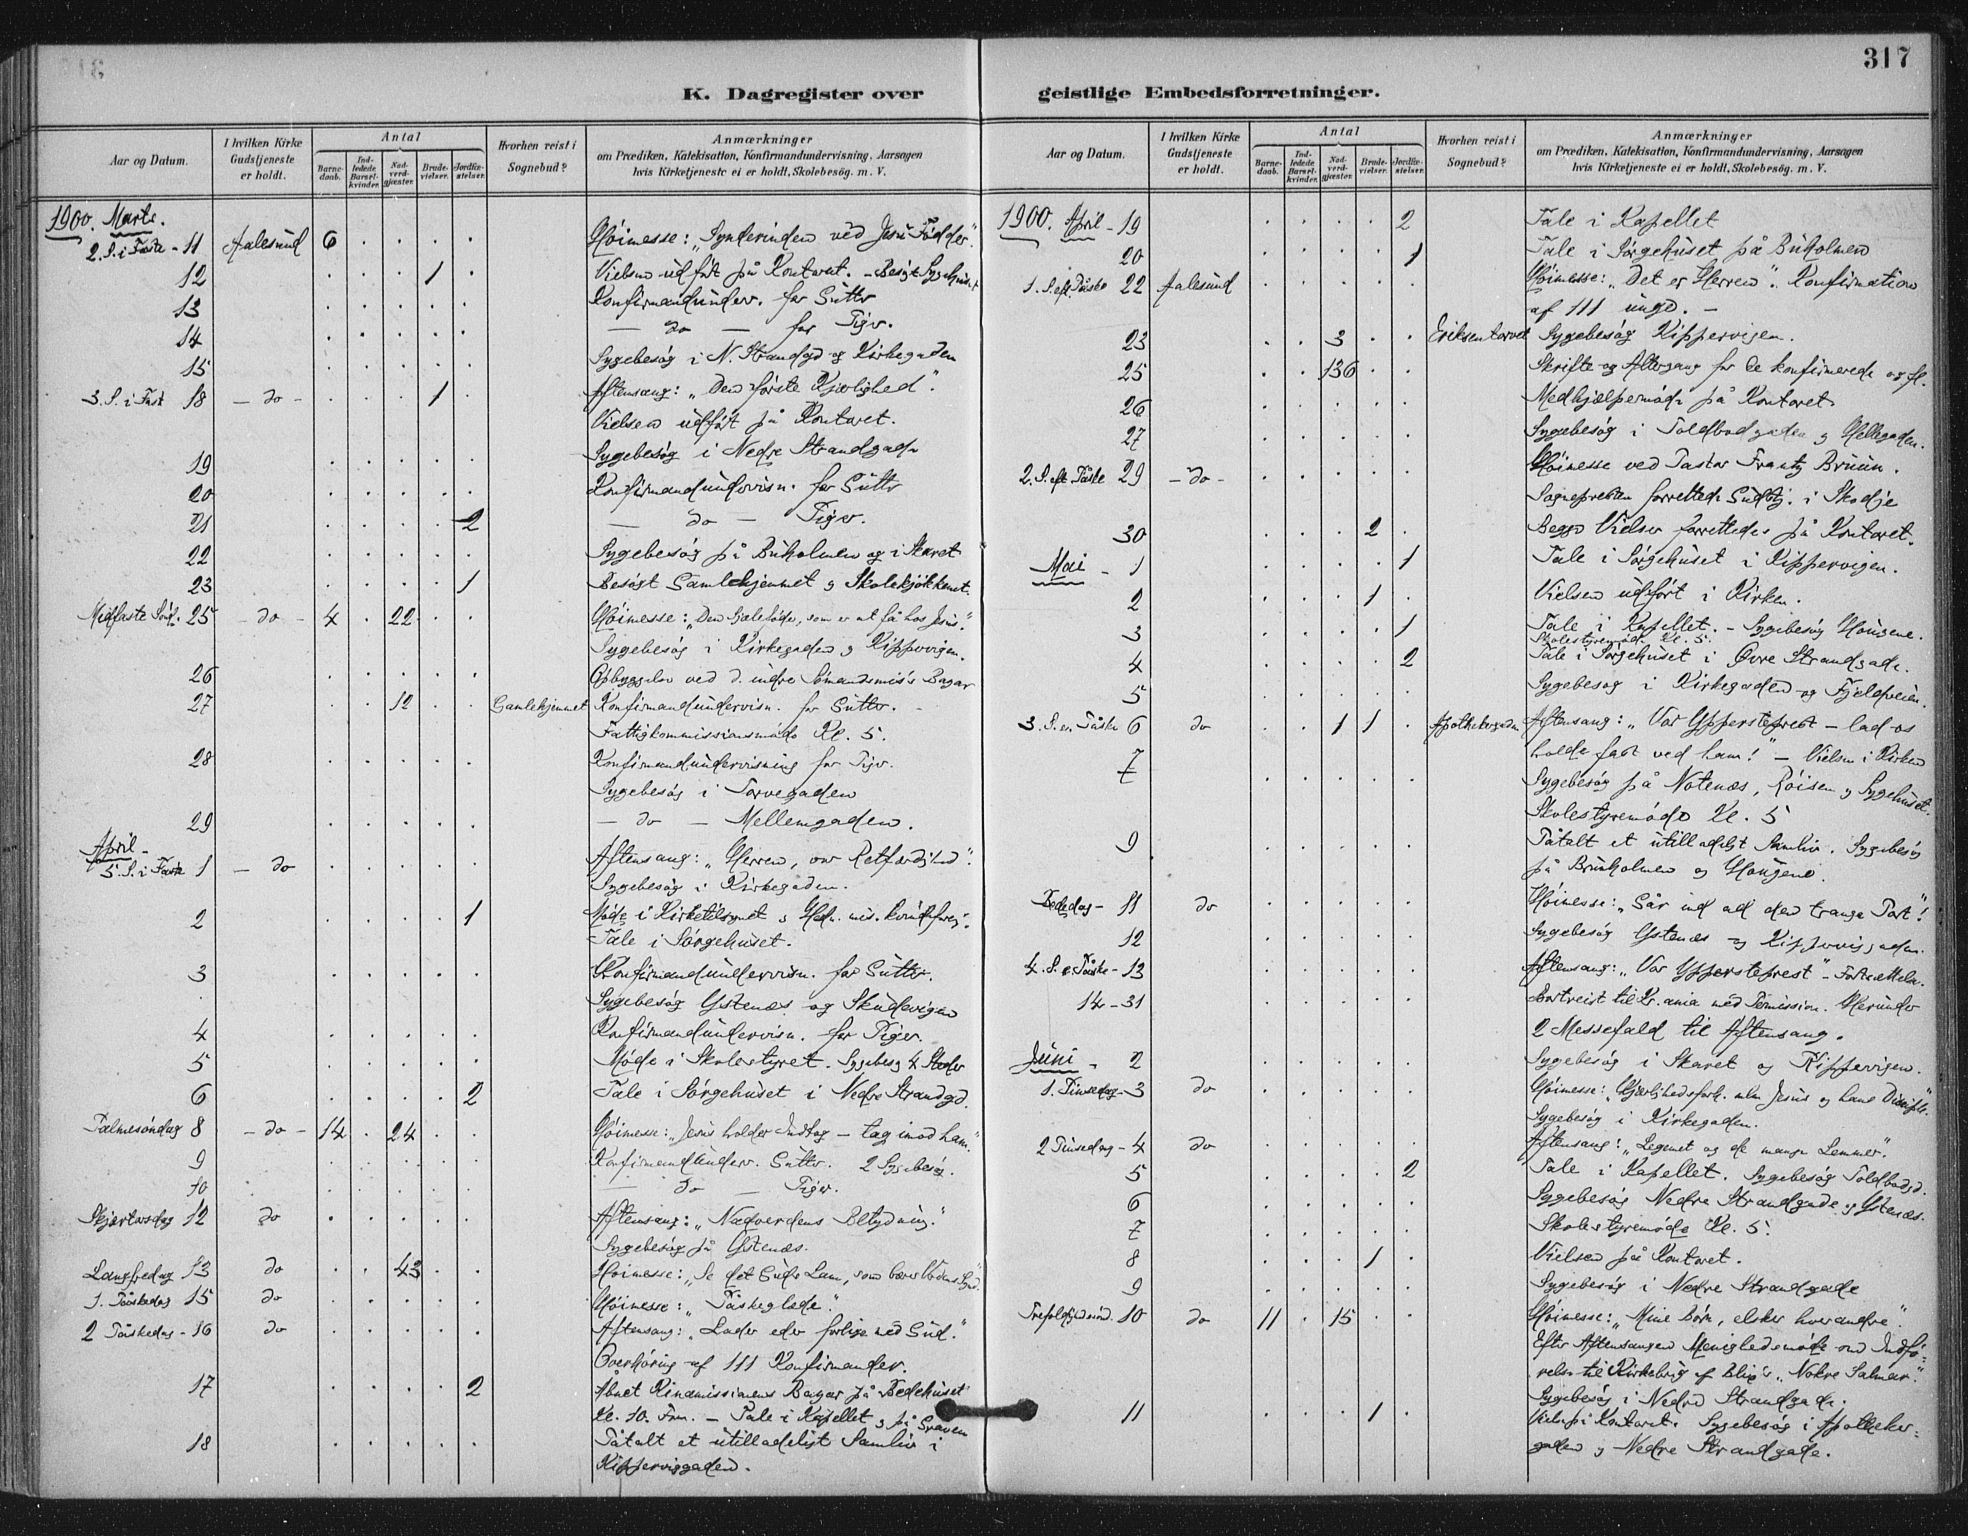 317
K. Dagregister over geistlige Embedsforretninger.
Aar og Datum.
I hvilken Kirke Gudstjeneste er holdt.
Antal
Barnedaab.
Indledede Barselkvinder.
Nadverdgjæster.
Brudevielser.
Jordfæstelser.
Hvorhen reist i Sognebud?
Anmærkninger
om Prædiken, Katekisation, Konfirmandundervisning, Aarsagen
hvis Kirketjeneste ei er holdt, Skolebesög. m. V.
1900. Marts.
2. S. i Faste - 11 Aalesund 6 Höimesse: "Synderinden ved Jesu Födder".
12 1 Vielsen udfört på Kontoret. - Besögt Sygehuset
13 Konfirmandunderv. for Gutter
14 — do — for Piger.
15 Sygebesög i N. Strandgd og Kirkegaden
3. S. i Fast 18 - do - 1 Aftensang: "Den förste Kjærlighed".
Vielsen udfört på Kontoret.
19 Sygebesög i Nedre Strandgade
20 Konfirmandundervisn. for Gutter
21 2 — do — Piger.
22 Sygebesög på Buholmen og i Skaret
23 1 Besögt Gamlehjemmet og Skolekjökkenet.
Midfaste Sönd. 25 - do - 4 22 Höimesse: "Den Sjæleföde, som er at få hos Jesus".
Sygebesög i Kirkegaden og Kippervigen.
26 Opbyggelse ved d. indre Sömandsmis's Bazar
27 12 Gamlehjemmet Konfirmandundervisn. for Gutter.
Fattigkommissionsmöde Kl. 5.
28 Konfirmandundervisning for Piger.
Sygebesög i Torvegaden
29 — do — Mellemgaden.
April -
5. S. i Faste 1 - do Aftensang: "Herren, vor Retfærdighed".
Sygebesög i Kirkegaden.
2 1 Möde i Kirketilsynet og Hedn. mis. kvindeforen.
Tale i Sörgehuset.
3 Konfirmandundervisn. for Gutter.
Sygebesög Ystenæs og Skudevigen
4 Konfirmandundervisn. for Piger.
5 Möde i Skolestyret. Sygebesög 4 Steder
6 2 Tale i Sörgehuset i Nedre Strandgd.
Palmesöndag 8 - do - 14 24 Höimesse: "Jesus holder Indtog - tag imod ham".
9 Konfirmandunderv. Gutter. 2 Sygebesög.
10 — do — Piger.
Skjærtorsdag 12 do Aftensang: "Nadverdens Betydning."
Sygebesög på Ystenæs.
Langfredag 13 do 43 Höimesse: "Se det Guds Lam, som bærer Verdens Synd".
1. Påskedag 15 do Höimesse: "Påskeglæde".
2 Påskedag - 16 do Aftensang: "Lader eder forlige med Gud."
Overhöring af 111 Konfirmander.
17 2 Åbnet Kinamissionens Bazar på Bedehuset
Kl. 10. Frm. - Tale i Kapellet og på Graven
18 Påtalt et utilladeligt Samliv i
Kipperviggaden.
Aar og Datum.
I hvilken Kirke Gudstjeneste er holdt.
Antal
Barnedaab.
Indledede Barselkvinder.
Nadverdgjæster.
Brudevielser.
Jordfæstelser.
Hvorhen reist i Sognebud?
Anmærkninger
om Prædiken, Katekisation, Konfirmandundervisning, Aarsagen
hvis Kirketjeneste ei er holdt, Skolebesög. m. V.
1900. April - 19 2 Tale i Kapellet
20 1 Tale i Sörgehuset på Buholmen
1. S. eft. Påske 22 Aalesund Höimesse: "Det er Herren". Konfirmation
af 111 ungd. -
23 3 Eriksentorvet Sygebesög Kippervigen.
25 136 Skrifte og Altergang for de konfirmerede og fl.
26 Medhjælpermöde på Kontoret
27 Sygebesög i Toldbodgaden og Hellegaden.
2. S. eft. Påske 29 - do - Höimesse ved Pastor Frantz Bruun.
Sognepresten forrettede Gudstj. i Skodje
30 2 Begge Vielser forrettedes på Kontoret.
Mai - 1 1 Tale i Sörgehuset i Kippervigen.
2 1 Vielsen udfört i Kirken.
3 1 Tale i Kapellet. - Sygebesög Hougene.
Skolestyremöde Kl. 5.
4 2 Tale i Sörgehuset i Övre Strandgade.
5 Sygebesög i Kirkegaden og Fjeldveien.
3. S. e. Påske 6 do 1 1 Apothekergaden Aftensang: "Vor Ypperstepræst - lad os
holde fast ved ham!" - Vielsen i Kirken
7 Sygebesög på Notenæs, Röisen og Sygehuset.
Skolestyremöde Kl. 5
9 Påtalt et utilladeligt Samliv. Sygebesög
på Buholmen og Hougene.
Bededag - 11 do Höimesse: "Går ind ad den trange Port"!
12 Sygebesög Ystenæs og Kipperviggaden.
4. S. e. Påske - 13 Aftensang: "Vor Ypperstepræst" - Fortsættelse.
14 - 31 Bortreist til Kr.ania med Permission. Herunder
2 Messefald til Aftensang.
Juni - 2 Sygebesög i Skaret og Kippervigen.
1. Pinsedag - 3 do Höimesse: "Kjærlighedsforh. mlm Jesus og hans Disciple".
Sygebesög i Kirkegaden.
2 Pinsedag - 4 do Aftensang: "Legemet og de mange Lemmer".
5 2 Tale i Kapellet. Sygebesög Toldbodgd.
6 Sygebesög Nedre Strandgade og Ystenæs.
7 Skolestyremöde Kl. 5.
8 1 Vielsen på Kontoret.
9 Sygebesög i Nedre Strandgade
Trefoldighedssönd. 10 do 11 15 Höimesse: "Mine Börn, elsker hverandre".
Efter Aftensangen Menighedsmöde om Indfö-
relse til Kirkebrug af Blix's "Nokre Salmar".
Sygebesög i Nedre Strandgade.
11 1 Vielse på Kontoret. Sygebesög i Apotheker-
gaden og Nedre Strandgade.